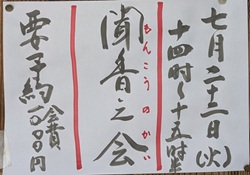 七月二十二日(火)
十四時~十五時半
聞香之会
もんこうのかい
要予約
会費